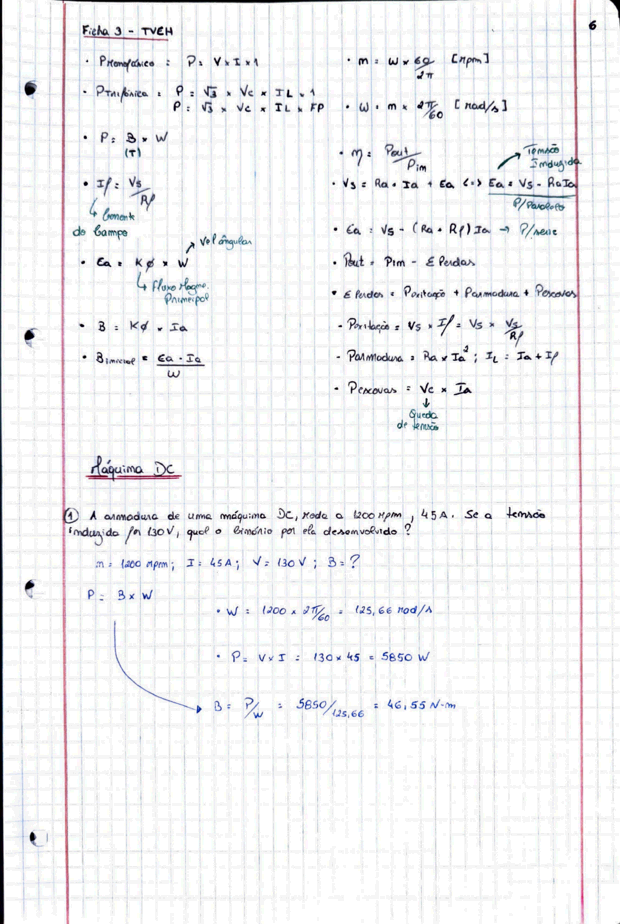 6
Ficha 3 - TVEH
• Pmonofásico = P = V × I × 1
• Ptrifásica = P = √3 × Vc × IL × 1
P = √3 × Vc × IL × FP
• P = B × W
(T)
• If = Vs/Rf
Corrente
do Campo
• Ea = Kϕ × W
Vel ângular
Fluxo Magne.
Principal
• B = Kϕ × Ia
• Binicial = Ea · Ia / W
• n = W × 60/2π [rpm]
• W = n × 2π/60 [rad/s]
• η = Pout/Pin
Tensão
Induzida
• Vs = Ra · Ia + Ea <=> Ea = Vs - RaIa
P/Paralelo
• Ea = Vs - (Ra + Rf) Ia → P/serie
• Pout = Pin - Σ Perdas
• Σ Perdas = Pexcitação + Parmadura + Pescovas
- Pexcitação = Vs × If = Vs × Vs/Rf
- Parmadura = Ra × Ia² ; IL = Ia + If
- Pescovas = Vc × Ia
Queda
de tensão
Máquina DC
① A armadura de uma máquina DC, roda a 1200 rpm, 45A. Se a tensão
induzida for 130V, qual o binário por ela desenvolvido ?
n = 1200 rpm ; I = 45A ; V = 130V ; B = ?
P = B × W
• W = 1200 × 2π/60 = 125,66 rad/s
• P = V × I = 130 × 45 = 5850 W
B = P/W = 5850/125,66 = 46,55 N·m